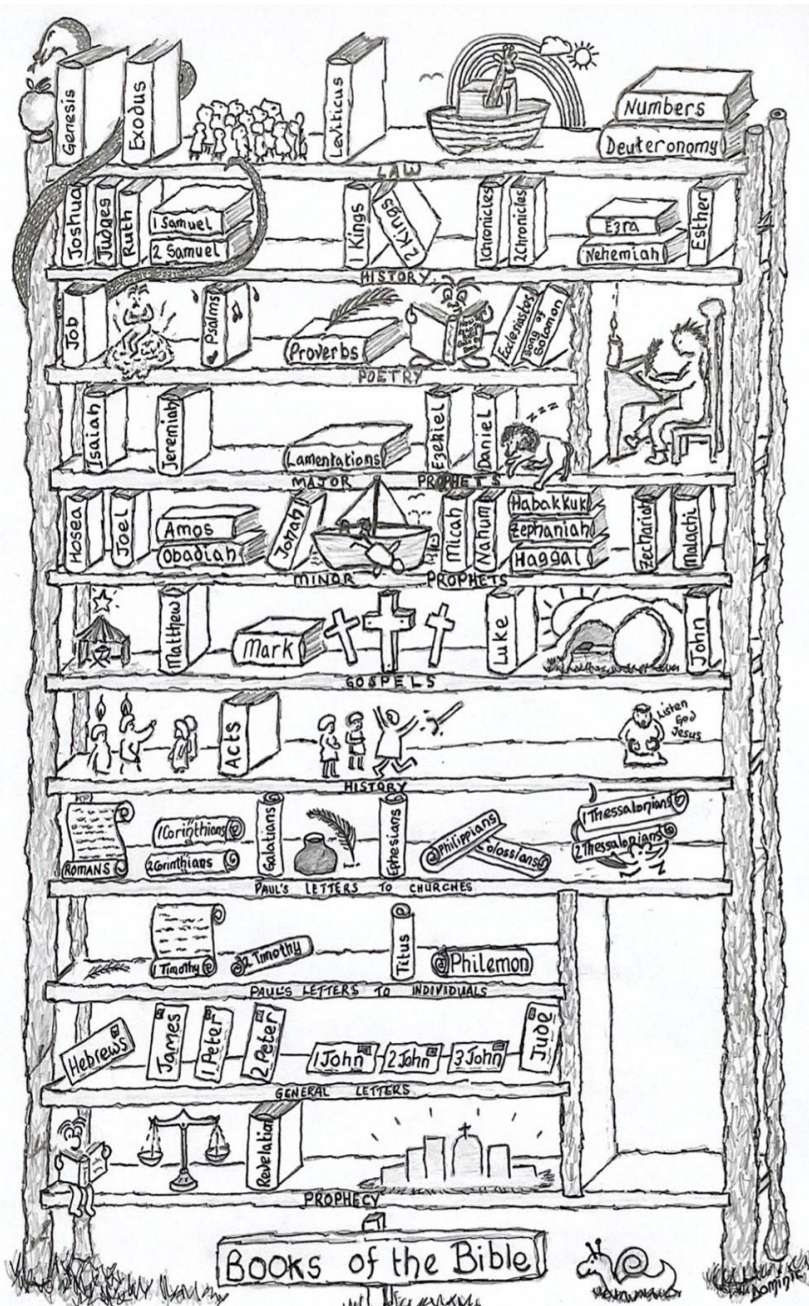 Genesis
Exodus
Leviticus
Numbers
Deuteronomy
LAW
Joshua
Judges
Ruth
1 Samuel
2 Samuel
1 Kings
2 Kings
1 Chronicles
2 Chronicles
Ezra
Nehemiah
Esther
HISTORY
Job
Psalms
Proverbs
Ecclesiastes
Song of
Solomon
POETRY
Isaiah
Jeremiah
Lamentations
Ezekiel
Daniel
zzz
MAJOR PROPHETS
Hosea
Joel
Amos
Obadiah
Jonah
Micah
Nahum
Habakkuk
Zephaniah
Haggai
Zechariah
Malachi
MINOR PROPHETS
Matthew
Mark
Luke
John
GOSPELS
Acts
Listen
God
Jesus
HISTORY
ROMANS
1 Corinthians
2 Corinthians
Galatians
Ephesians
Philippians
Colossians
1 Thessalonians
2 Thessalonians
PAUL'S LETTERS TO CHURCHES
1 Timothy
2 Timothy
Titus
Philemon
PAUL'S LETTERS TO INDIVIDUALS
Hebrews
James
1 Peter
2 Peter
1 John
2 John
3 John
Jude
GENERAL LETTERS
Revelation
PROPHECY
BOOKS of the BIBLE
Dominic